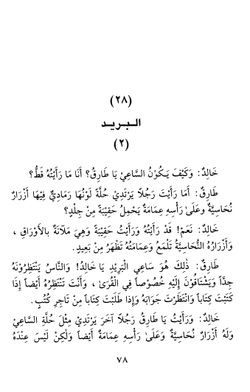 (٢٨)
البريد
(٢)
خَالِدٌ: وَكَيْفَ يَكُونُ السَّاعِيْ يَا طَارِقُ؟ أَنَا مَا رَأَيْتُهُ قَطُّ؟
طَارِقٌ: أَمَا رَأَيْتَ رَجُلاً يَرْتَدِيْ حُلَّةً لَوْنُهَا رَمَادِيٌّ فِيْهَا أَزْرَارٌ
نُحَاسِيَّةٌ وَعَلَىٰ رَأْسِهِ عِمَامَةٌ يَحْمِلُ حَقِيْبَةً مِنْ جِلْدٍ؟
خَالِدٌ: نَعَمْ! قَدْ رَأَيْتُهُ وَرَأَيْتُ حَقِيْبَةً وَهِيَ مَلآنَةٌ بِالأَوْرَاقِ ،
وَأَزْرَارُهُ النُّحَاسِيَّةُ تَلْمَعُ وَعِمَامَتُهُ تَظْهَرُ مِنْ بَعِيدٍ.
طَارِقٌ: ذَلِكَ هُوَ سَاعِي الْبَرِيْدِ يَا خَالِدُ! وَالنَّاسُ يَنْتَظِرُوْنَهُ
جِدًّا وَيَشْتَاقُوْنَ إِلَيْهِ خُصُوْصاً فِي الْقُرَىٰ ، وَأَنْتَ تَنْتَظِرُهُ أَيْضاً إِذَا
كَتَبْتَ كِتَاباً وَانْتَظَرْتَ جَوَابَهُ وَإِذَا طَلَبْتَ كِتَاباً مِنْ تَاجِرِ كُتُبٍ.
خَالِدٌ: وَرَأَيْتُ يَا طَارِقُ رَجُلاً آخَرَ يَرْتَدِيْ مِثْلَ حُلَّةِ السَّاعِيْ
وَلَهُ أَزْرَارٌ نُحَاسِيَّةٌ وَعَلَىٰ رَأْسِهِ عِمَامَةٌ أَيْضاً وَلَكِنْ لَيْسَ عِنْدَهُ
٧٨